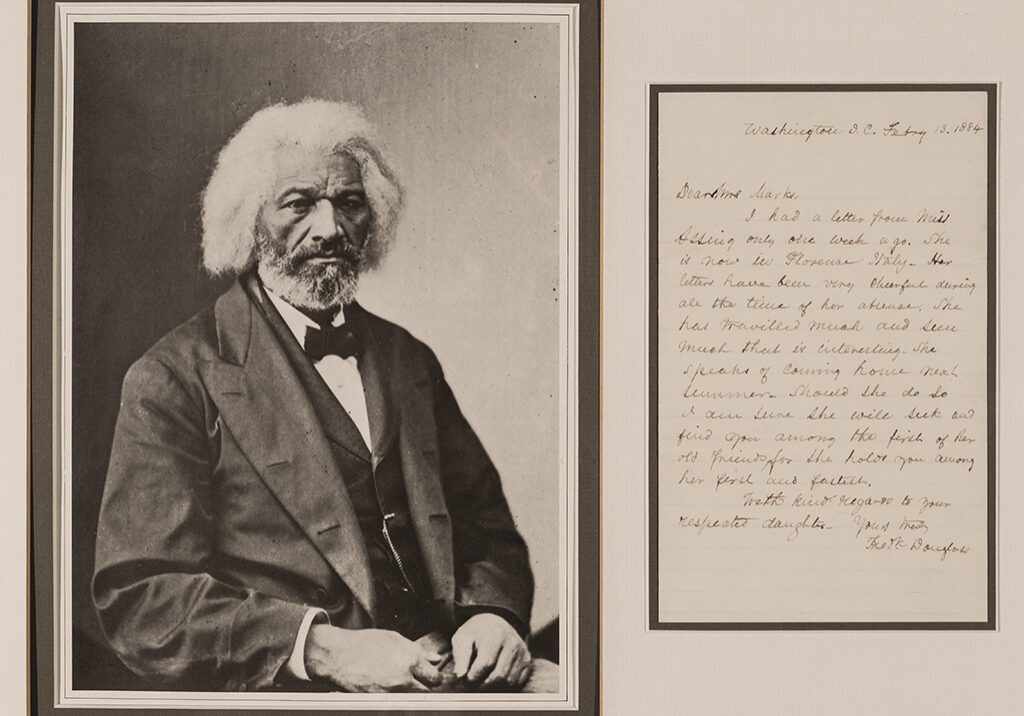 Washington D.C. Febry 13. 1884
Dear Mrs Marks.
I had a letter from Miss
Assing only one week ago. She
is now in Florence Italy - Her
letters have been very cheerful during
all the time of her absence. She
has travelled much and seen
much that is interesting - She
speaks of coming home next
summer. Should she do so
I am sure she will seek and
find you among the first of her
old friends for she holds you among
her first and fastest.
With kind regards to your
respected daughter - Yours truly
Fredk Douglass